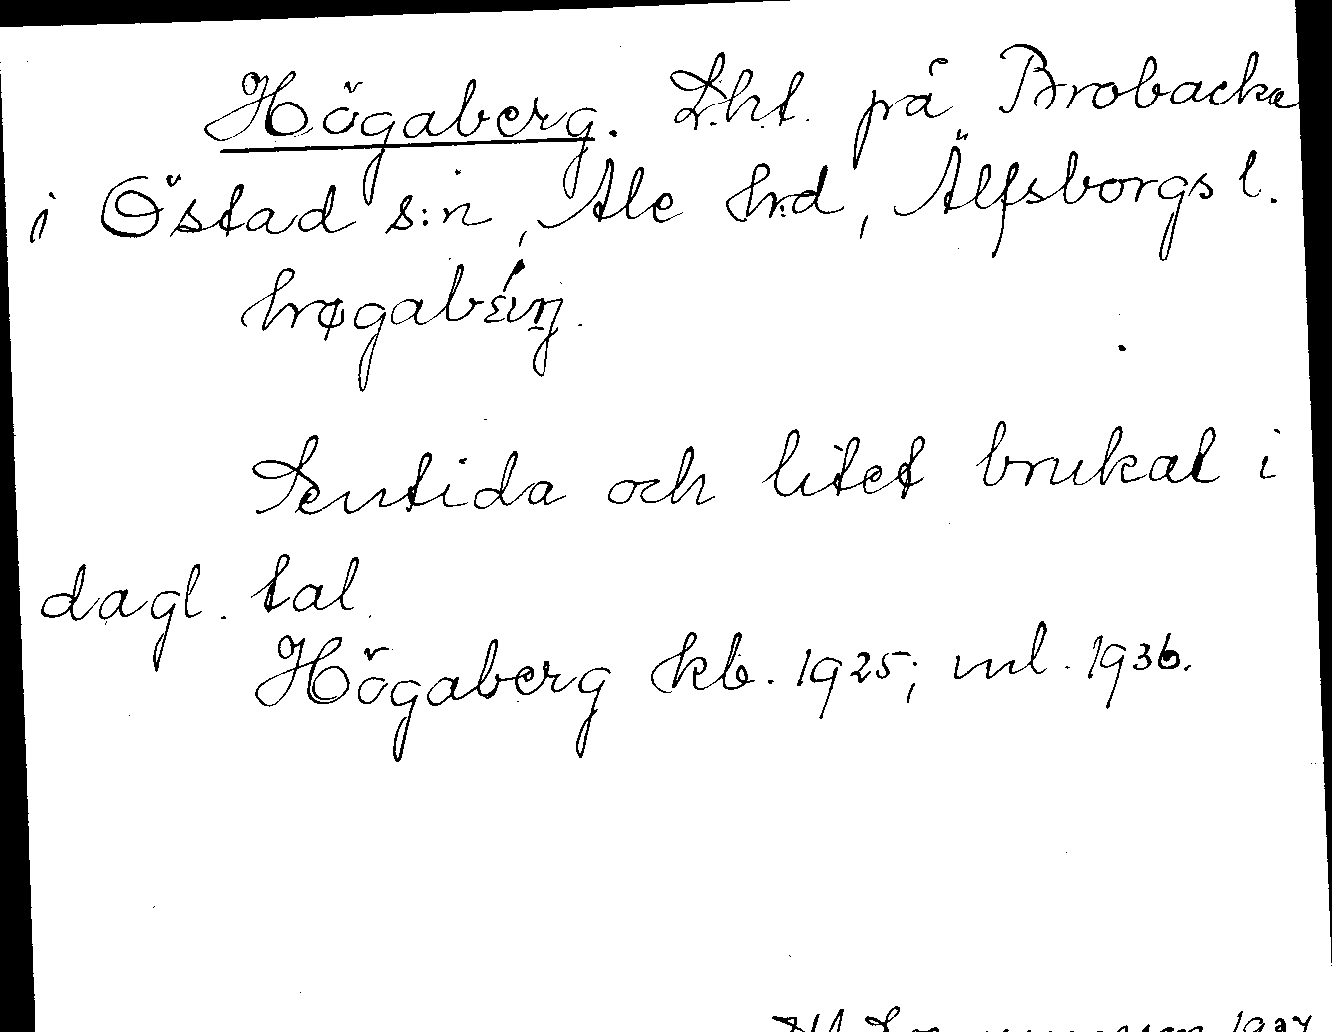 Högaberg. L.ht. på Brobacka
i Östad s:n, Ale hrd, Älfsborgs l.
Sentida och litet brukat i
dagl. tal.
Högaberg kb. 1925; ml. 1936.